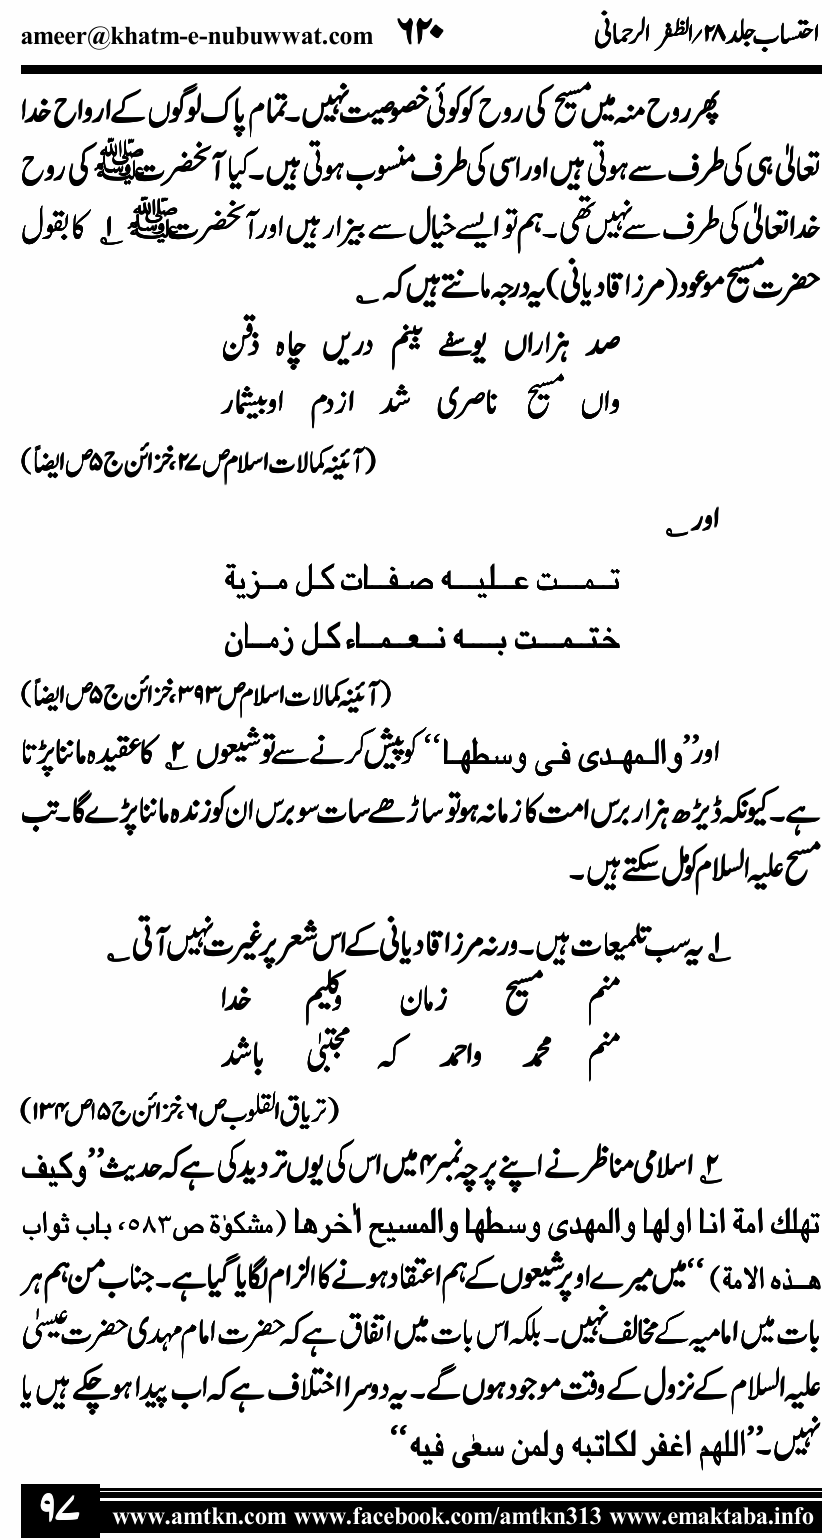 ameer@khatm-e-nubuwwat.com ۶۲۰ احتساب جلد ۲۸/الظفر الرحمانی
پھر روح منہ میں مسیح کی روح کو کوئی خصوصیت نہیں۔ تمام پاک لوگوں کے ارواح خدا
تعالیٰ ہی کی طرف سے ہوتی ہیں اور اسی کی طرف منسوب ہوتی ہیں۔ کیا آنحضرت ﷺ کی روح
خدا تعالیٰ کی طرف سے نہیں تھی۔ ہم تو ایسے خیال سے بیزار ہیں اور آنحضرت ﷺ ۱؎ کا بقول
حضرت مسیح موعود (مرزا قادیانی) یہ درجہ مانتے ہیں کہ ؎
صد ہزاراں یوسفے بینم دریں چاہ ذقن
واں مسیح ناصری شد از دم او بیشمار
(آئینہ کمالات اسلام ص۲۷، خزائن ج۵ ص ایضاً)
اور ؎
تمت علیه صفات کل مزیة
ختمت به نعماء کل زمان
(آئینہ کمالات اسلام ص۳۹۳، خزائن ج۵ ص ایضاً)
اور ’’والمهدی فی وسطها‘‘ کو پیش کرنے سے تو شیعوں ۲؎ کا عقیدہ ماننا پڑتا
ہے۔ کیونکہ ڈیڑھ ہزار برس امت کا زمانہ ہو تو ساڑھے سات سو برس ان کو زندہ ماننا پڑے گا۔ تب
مسح علیہ السلام کو مل سکتے ہیں۔
۱؎ یہ سب تلمیعات ہیں۔ ورنہ مرزا قادیانی کے اس شعر پر غیرت نہیں آتی ؎
منم مسیح زمان وکلیم خدا
منم محمد واحمد کہ مجتبیٰ باشد
(تریاق القلوب ص۶، خزائن ج۱۵ ص۱۳۴)
۲؎ اسلامی مناظر نے اپنے پرچہ نمبر۴ میں اس کی یوں تردید کی ہے کہ حدیث ’’وکیف
تهلك امة انا اولها والمهدی وسطها والمسیح اٰخرها (مشکوٰة ص۵۸۳، باب ثواب
هذه الامة)‘‘ میں میرے اوپر شیعوں کے ہم اعتقاد ہونے کا الزام لگایا گیا ہے۔ جناب من ہم ہر
بات میں امامیہ کے مخالف نہیں۔ بلکہ اس بات میں اتفاق ہے کہ حضرت امام مہدی حضرت عیسیٰ
علیہ السلام کے نزول کے وقت موجود ہوں گے۔ یہ دوسرا اختلاف ہے کہ اب پیدا ہو چکے ہیں یا
نہیں۔ ’’اللهم اغفر لکاتبه ولمن سعٰی فیه‘‘
۹۷ www.amtkn.com www.facebook.com/amtkn313 www.emaktaba.info